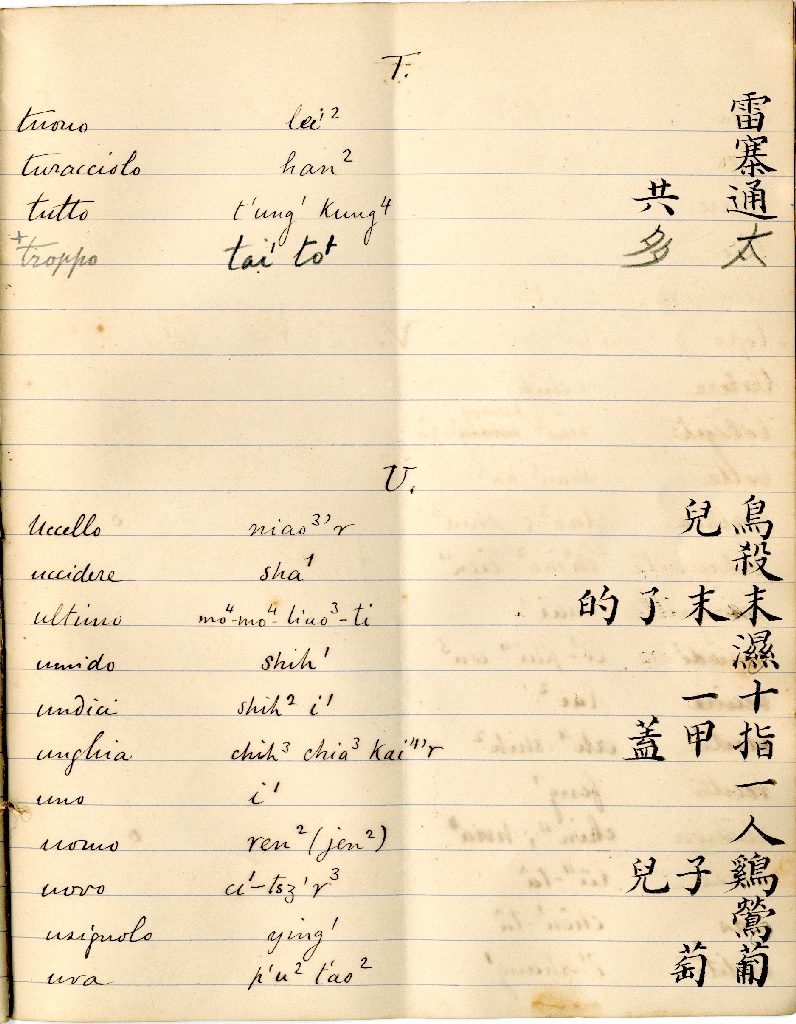 T.
tuono lei² 雷
turacciolo han² 寨
tutto t'ung¹ kung⁴ 通共
+troppo tai¹ to⁴ 太多
U.
Uccello niao³'r 鳥兒
uccidere sha¹ 殺
ultimo mo⁴-mo⁴-liao³-ti 末末了的
umido shih¹ 濕
undici shih² i¹ 十一
unghia chih³ chia³ kai⁴'r 指甲蓋
uno i¹ 一
uomo ren² (jen²) 人
uovo ci¹-tsz¹r³ 鷄子兒
usignolo ying¹ 鶯
uva p'u² t'ao² 葡萄